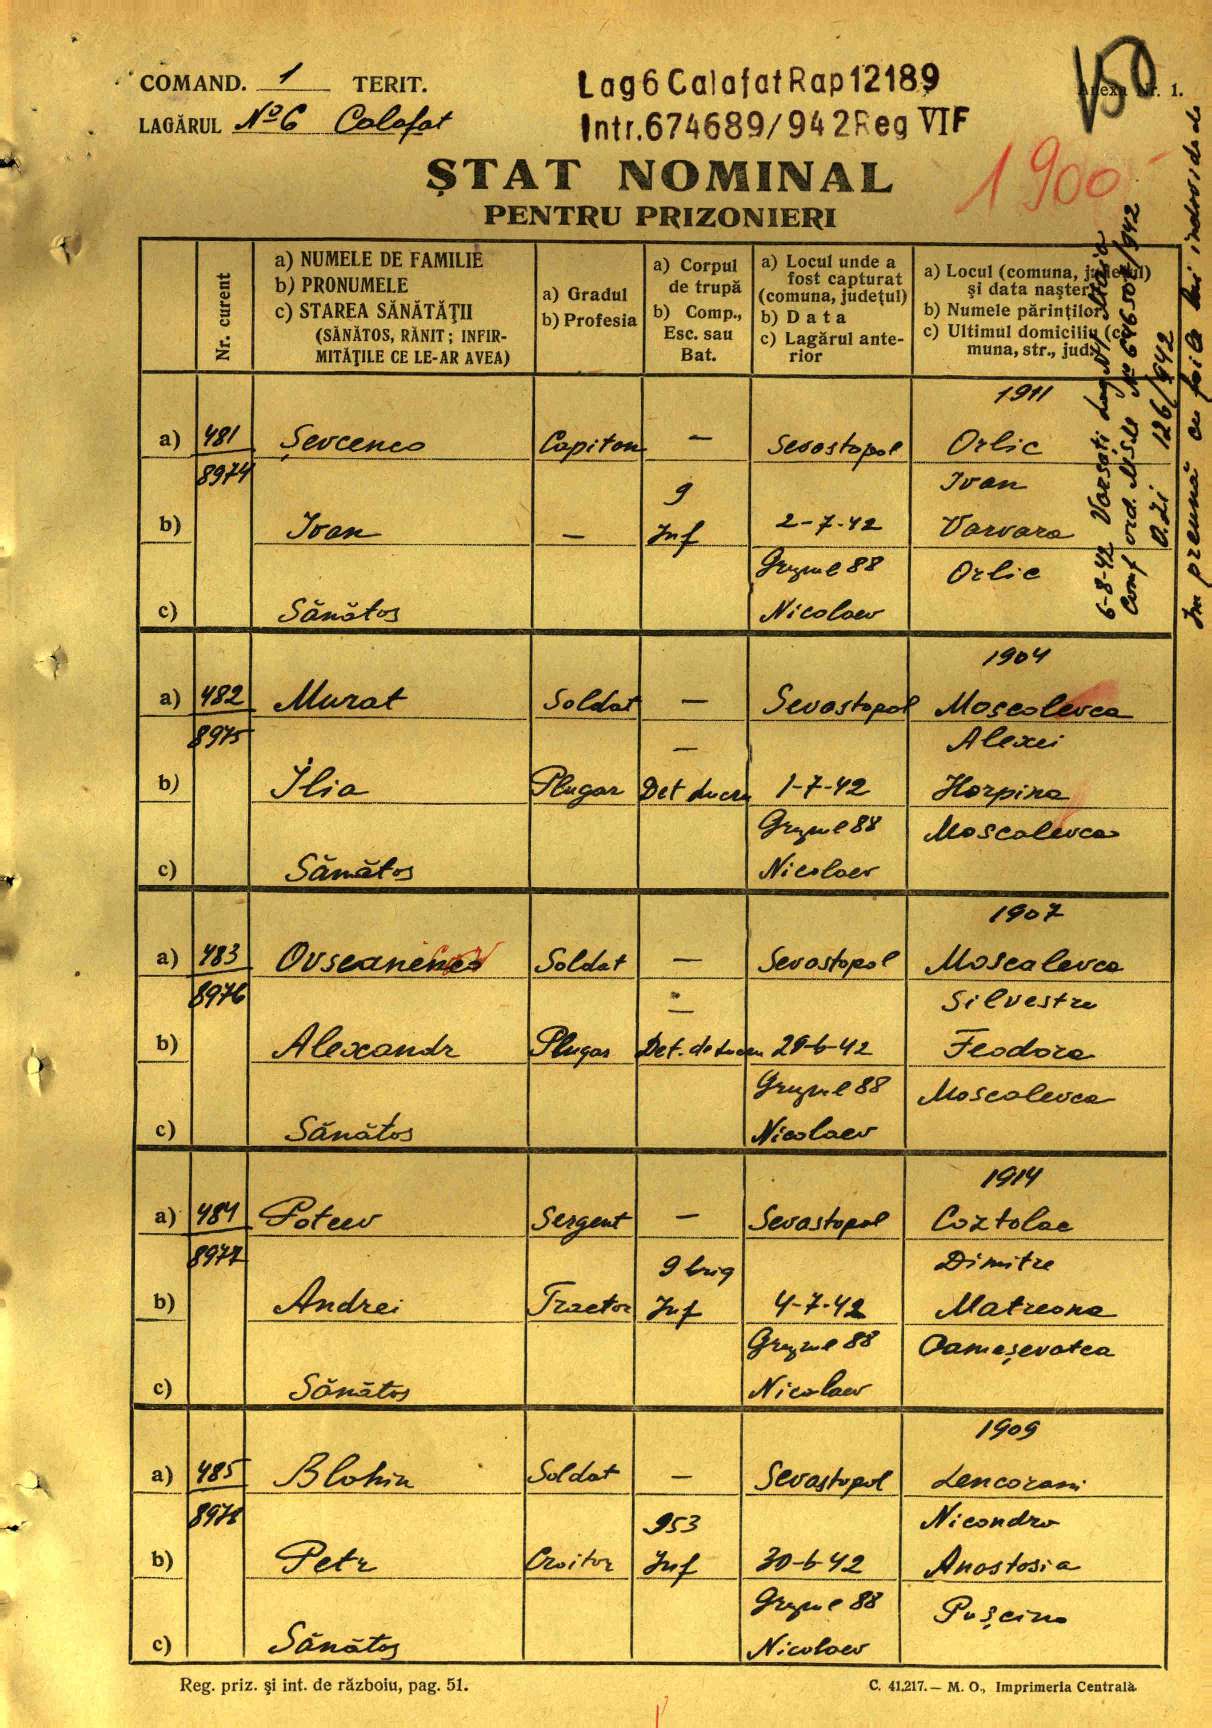 COMAND. 1 TERIT.
LAGĂRUL No 6 Calafat
Lag6CalafatRap12189
Intr.674689/942Reg VIF
V50
Anexa Nr. 1.
1900
ȘTAT NOMINAL
PENTRU PRIZONIERI
Nr. curent
a) NUMELE DE FAMILIE
b) PRONUMELE
c) STAREA SĂNĂTĂŢII
(SĂNĂTOS, RĂNIT; INFIR-
MITĂŢILE CE LE-AR AVEA)
a) Gradul
b) Profesia
a) Corpul
de trupă
b) Comp.,
Esc. sau
Bat.
a) Locul unde a
fost capturat
(comuna, judeţul)
b) Data
c) Lagărul ante-
rior
a) Locul (comuna, judeţul)
şi data naşterii
b) Numele părinţilor
c) Ultimul domiciliu (co-
muna, str., jud.)
6-8-42 Vărsați Lag.
Conf ord. M.St.M No 646507/942
O.Zi 126/942
Împreună cu foile
1911
a) 481 Șevcenco Capitan — Sevastopol Orlic
8974
9
Ivan
b) Ivan — Inf 2-7-42 Varvara
Grupul 88 Orlic
c) Sănătos Nicolaev
1904
a) 482 Murat Soldat — Sevastopol Moscalevca
8975
— Alexei
b) Ilia Plugar Det Lucru 1-7-42 Horpina
Grupul 88 Moscalevca
c) Sănătos Nicolaev
1907
a) 483 Ovseanenco Soldat — Sevastopol Moscalevca
8976
— Silvestru
b) Alexandr Plugar Det. de Lucru 29-6-42 Feodora
Grupul 88 Moscalevca
c) Sănătos Nicolaev
1914
a) 484 Poteev Sergent — Sevastopol Coztolac
8977
9 brig Dimitre
b) Andrei Tractor Inf 4-7-42 Matreona
Grupul 88 Cameșevatca
c) Sănătos Nicolaev
1909
a) 485 Blohin Soldat — Sevastopol Lencorani
8978
953 Nicondro
b) Petr Croitor Inf 30-6-42 Anastasia
Grupul 88 Pușcino
c) Sănătos Nicolaev
Reg. priz. şi int. de războiu, pag. 51.
C. 41.217. — M. O., Imprimeria Centrală.